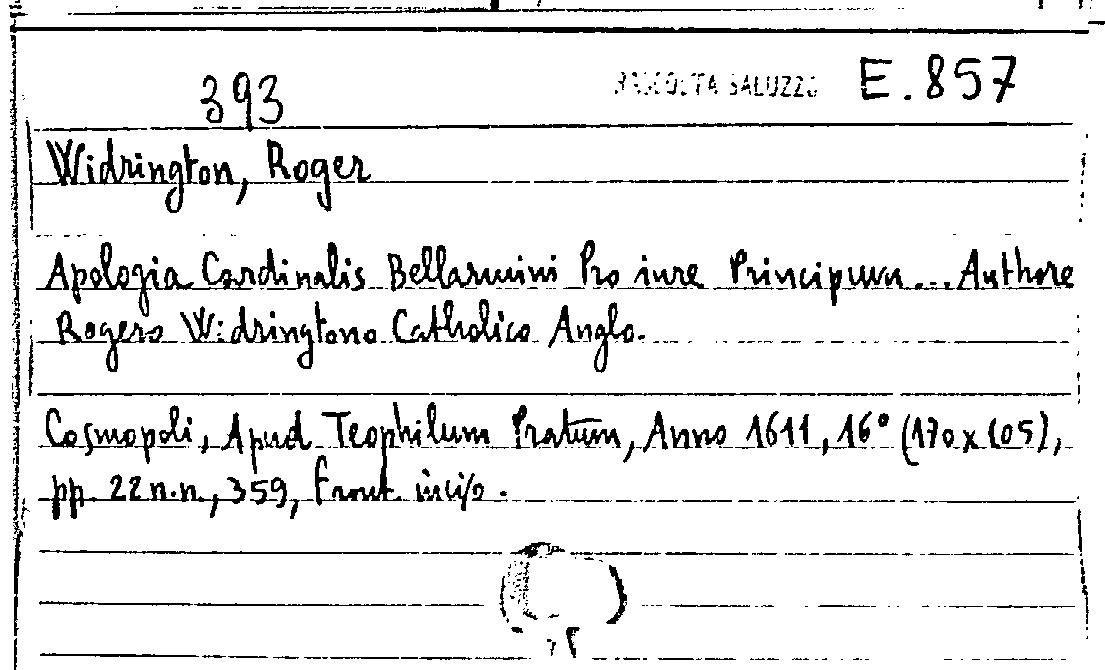 393 RACCOLTA SALUZZO E.857
Widrington, Roger
Apologia Cardinalis Bellarmini Pro iure Principum... Authore
Rogero Widringtono Catholico Anglo.
Cosmopoli, Apud Teophilum Pratum, Anno 1611, 16° (170x105),
pp. 22 n.n., 359, Front. inciso.